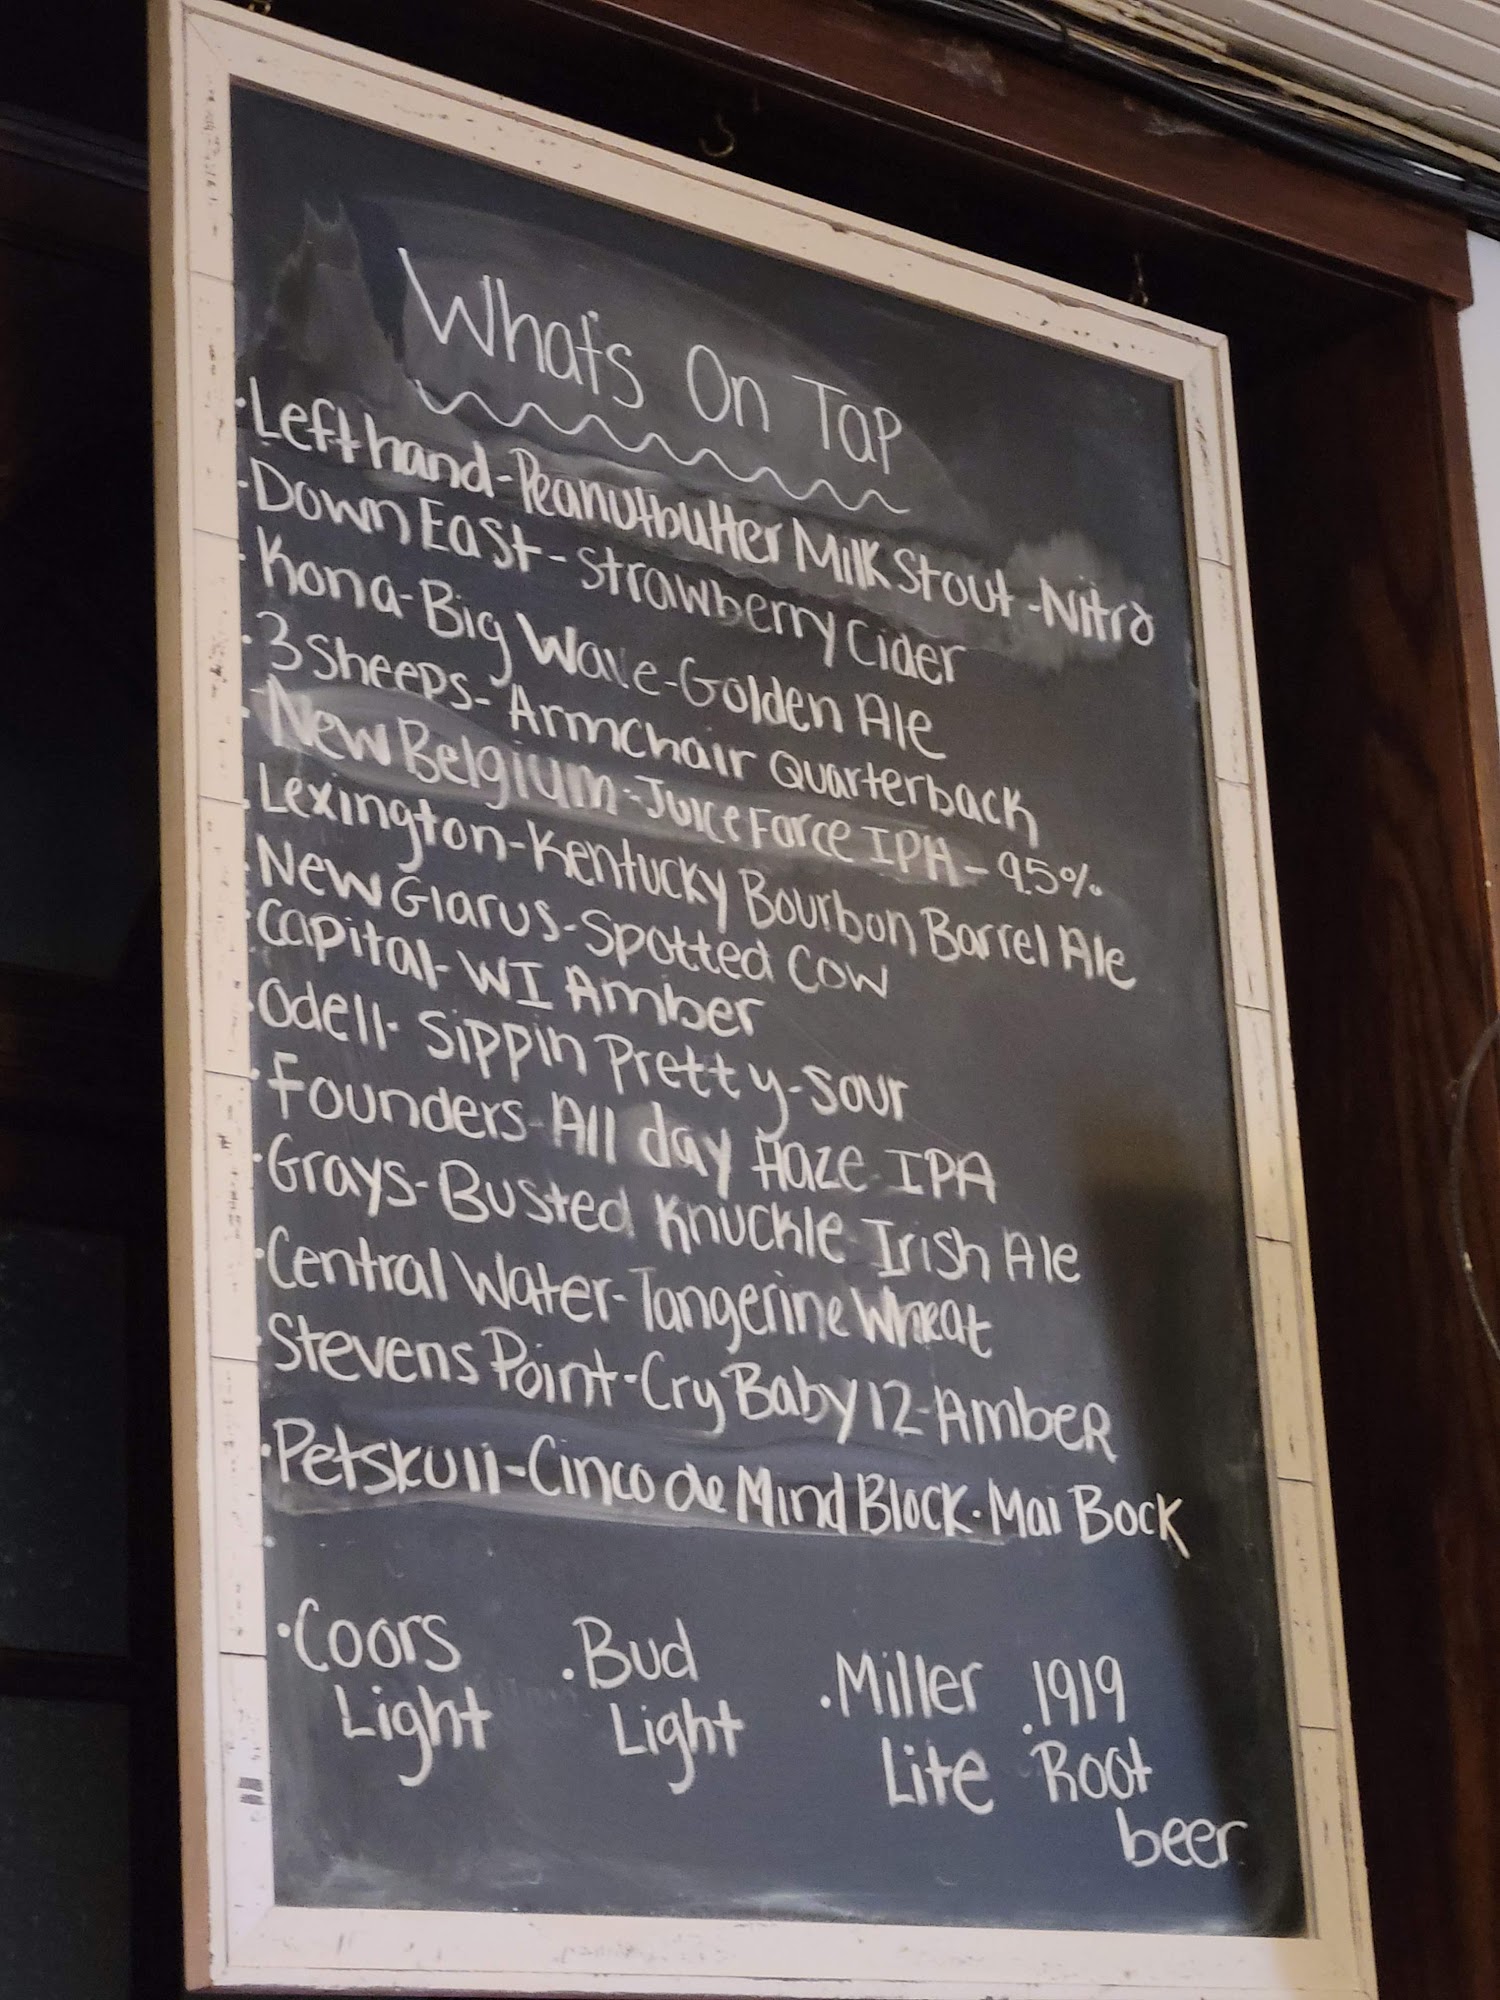 What's On Tap
· Left hand - Peanutbutter Milk Stout - Nitro
· Down East - Strawberry Cider
· Kona - Big Wave - Golden Ale
· 3 Sheeps - Armchair Quarterback
· New Belgium - Juice Force IPA - 9.5%
· Lexington - Kentucky Bourbon Barrel Ale
· New Glarus - Spotted Cow
· Capital - WI Amber
· Odell - Sippin Pretty - Sour
· Founders - All day Haze IPA
· Grays - Busted Knuckle Irish Ale
· Central Water - Tangerine Wheat
· Stevens Point - Cry Baby 12 - Amber
· Petskull - Cinco de Mind Block · Mai Bock
· Coors Light
· Bud Light
· Miller Lite
· 1919 Root beer